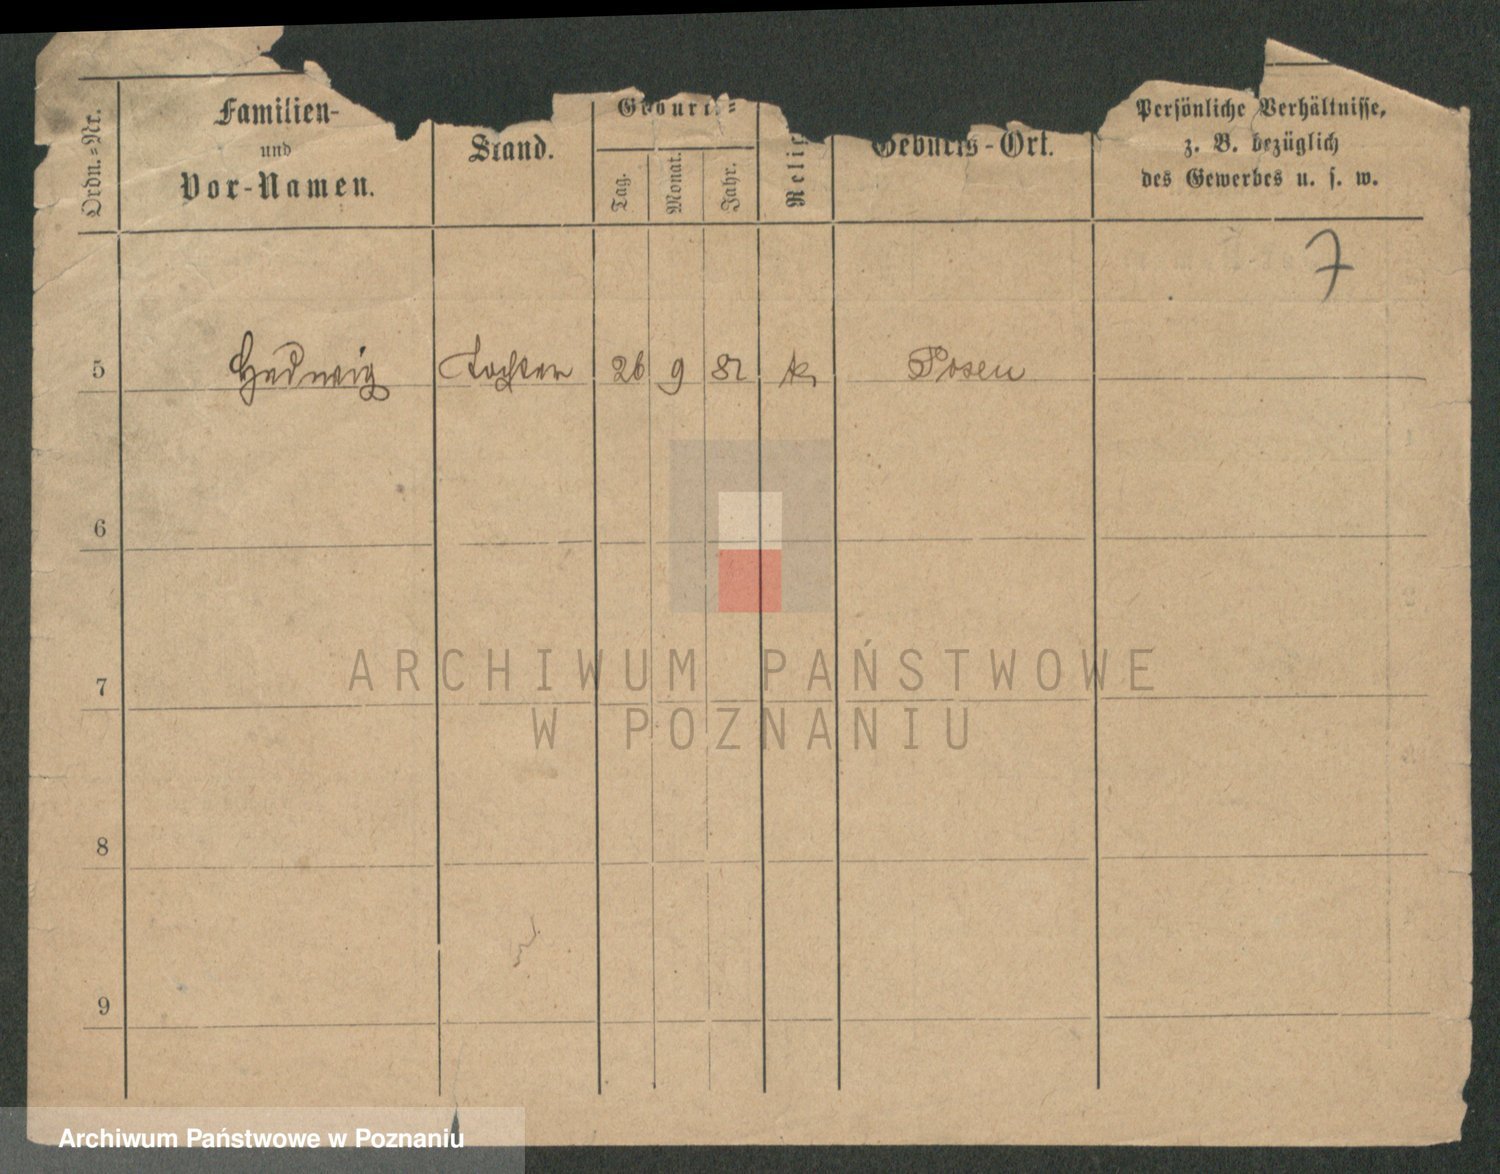 Ordn.-Nr.
Familien-
und
Vor-Namen.
Stand.
Geburts-
Tag.
Monat.
Jahr.
Relig
Geburts-Ort.
Persönliche Verhältnisse,
z. B. bezüglich
des Gewerbes u. s. w.
7
5 Hedwig Tochter 26 9 82 k. Posen
6
ARCHIWUM PAŃSTWOWE
7
W POZNANIU
8
9
Archiwum Państwowe w Poznaniu